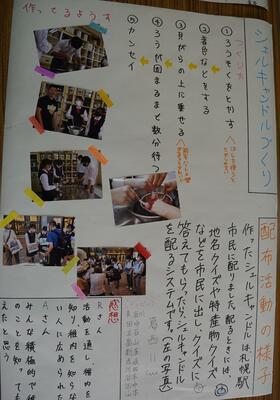 シェルキャンドルづくり
つくりかた
①ろうそくをとかす
②着色などをする
③貝がらの上に乗せる
④ろうが固まるまで数分待つ
⑤カンセイ
作ってるようす
配布活動の様子
作ったシェルキャンドルは札幌駅で
市民に配りました。配るときには、
地名クイズや特産物クイズ
などを市民に出し、クイズに
答えてもらったらシェルキャンドル
を配るシステムです。(左の写真)
感想
Rさん
活動を通し、稚内を
知り稚内を知らな
い人に広められた
Aさん
みんな積極的で稚内
のことを知ってもら
えたと思う